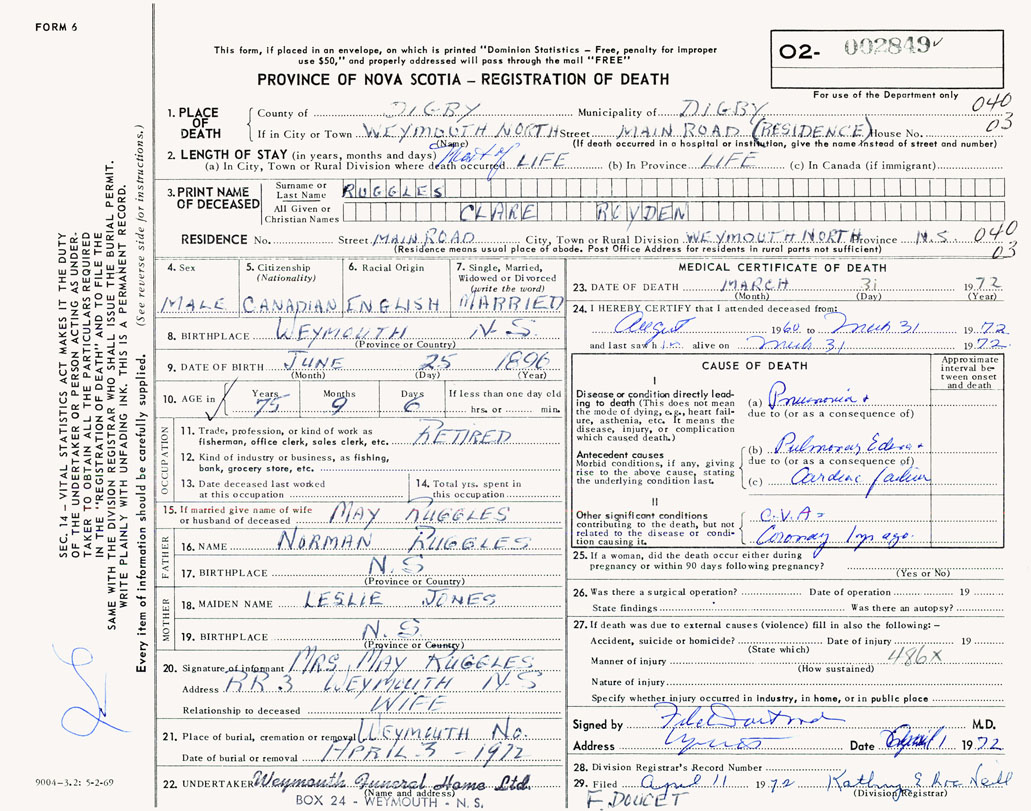 FORM 6
This form, if placed in an envelope, on which is printed "Dominion Statistics – Free, penalty for improper
use $50," and properly addressed will pass through the mail "FREE"
PROVINCE OF NOVA SCOTIA – REGISTRATION OF DEATH
O2- 002849
For use of the Department only
SEC. 14 – VITAL STATISTICS ACT MAKES IT THE DUTY
OF THE UNDERTAKER OR PERSON ACTING AS UNDER-
TAKER TO OBTAIN ALL THE PARTICULARS REQUIRED
IN THE "REGISTRATION OF DEATH" AND TO FILE THE
SAME WITH THE DIVISION REGISTRAR WHO SHALL ISSUE THE BURIAL PERMIT.
WRITE PLAINLY WITH UNFADING INK. THIS IS A PERMANENT RECORD.
Every item of information should be carefully supplied. (See reverse side for instructions.)
1. PLACE OF DEATH
County of DIGBY Municipality of DIGBY 040
If in City or Town WEYMOUTH NORTH Street MAIN ROAD (RESIDENCE) House No. 03
(Name) (If death occurred in a hospital or institution, give the name instead of street and number)
2. LENGTH OF STAY (in years, months and days)
(a) In City, Town or Rural Division where death occurred Most of LIFE (b) In Province LIFE (c) In Canada (if immigrant)
3. PRINT NAME OF DECEASED
Surname or Last Name RUGGLES
All Given or Christian Names CLARE ROYDEN
RESIDENCE No. Street MAIN ROAD City, Town or Rural Division WEYMOUTH NORTH Province N.S. 040
(Residence means usual place of abode. Post Office Address for residents in rural parts not sufficient) 03
4. Sex MALE
5. Citizenship (Nationality) CANADIAN
6. Racial Origin ENGLISH
7. Single, Married, Widowed or Divorced (write the word) MARRIED
8. BIRTHPLACE WEYMOUTH N.S
(Province or Country)
9. DATE OF BIRTH JUNE 25 1896
(Month) (Day) (Year)
10. AGE in Years 75 Months 9 Days 6 If less than one day old hrs. or min.
OCCUPATION
11. Trade, profession, or kind of work as
fisherman, office clerk, sales clerk, etc. RETIRED
12. Kind of industry or business, as fishing,
bank, grocery store, etc.
13. Date deceased last worked
at this occupation
14. Total yrs. spent in
this occupation
15. If married give name of wife
or husband of deceased MAY RUGGLES
FATHER
16. NAME NORMAN RUGGLES
17. BIRTHPLACE N.S
(Province or Country)
MOTHER
18. MAIDEN NAME LESLIE JONES
19. BIRTHPLACE N.S
(Province or Country)
20. Signature of informant MRS. MAY RUGGLES
Address RR 3 WEYMOUTH N.S
Relationship to deceased WIFE
21. Place of burial, cremation or removal WEYMOUTH No.
Date of burial or removal APRIL 3 - 1972
22. UNDERTAKER Weymouth Funeral Home Ltd.
(Name and address)
BOX 24 - WEYMOUTH - N. S.
9004-3.2: 5-2-69
MEDICAL CERTIFICATE OF DEATH
23. DATE OF DEATH MARCH 31 1972
(Month) (Day) (Year)
24. I HEREBY CERTIFY that I attended deceased from:
August 1960 to March 31 1972
and last saw him alive on March 31 1972
CAUSE OF DEATH
Approximate interval between onset and death
I
Disease or condition directly lead-
ing to death (This does not mean
the mode of dying, e.g., heart fail-
ure, asthenia, etc. It means the
disease, injury, or complication
which caused death.)
(a) Pneumonia +
due to (or as a consequence of)
Antecedent causes
Morbid conditions, if any, giving
rise to the above cause, stating
the underlying condition last.
(b) Pulmonary Edema +
due to (or as a consequence of)
(c) Cardiac failure
II
Other significant conditions
contributing to the death, but not
related to the disease or condi-
tion causing it.
C.V.A =
Coronary 1 yr ago.
25. If a woman, did the death occur either during
pregnancy or within 90 days following pregnancy?
(Yes or No)
26. Was there a surgical operation? Date of operation 19
State findings Was there an autopsy?
27. If death was due to external causes (violence) fill in also the following:–
Accident, suicide or homicide? Date of injury 19
(State which)
Manner of injury 486X
(How sustained)
Nature of injury
Specify whether injury occurred in industry, in home, or in public place
Signed by M.D.
Address Date April 1 1972
28. Division Registrar's Record Number
29. Filed April 11 1972 Kathryn E.
(Division Registrar)
F. DOUCET